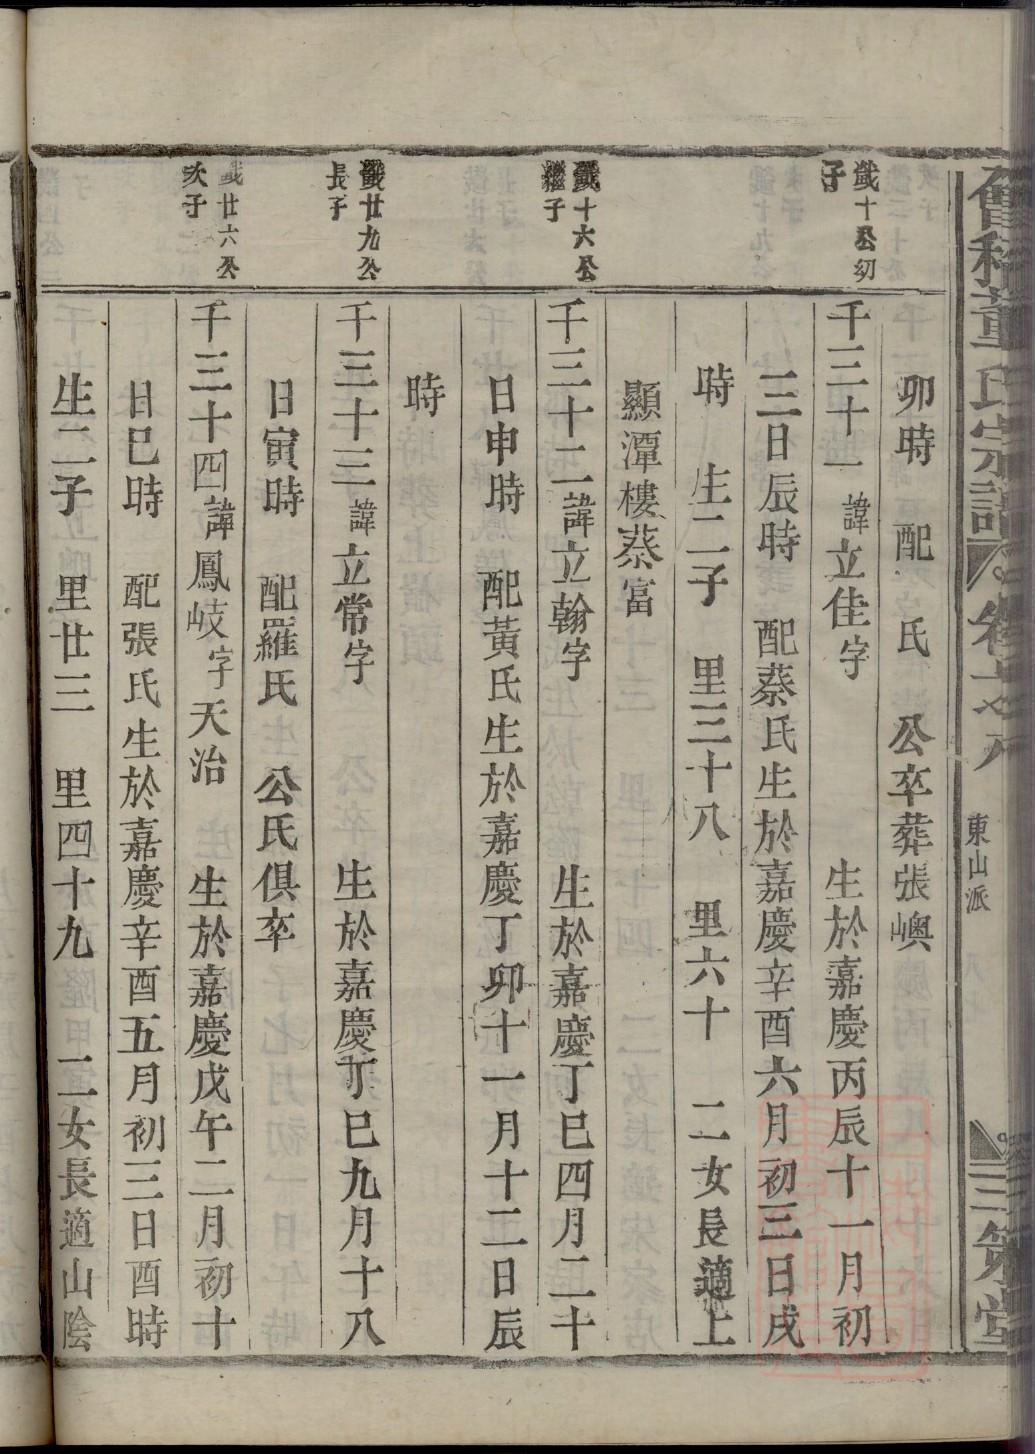 會稽董氏宗譜
東山派
三策堂
卯時 配 氏 公卒葬張嶴
鑯十公幼
子
千三十一諱立佳字 生於嘉慶丙辰十一月初
三日辰時 配蔡氏生於嘉慶辛酉六月初三日戌
時 生二子 里三十八 里六十 二女長適上
顯潭樓蔡富
鑯十六公
繼子
千三十二諱立翰字 生於嘉慶丁巳四月二十
日申時 配黃氏生於嘉慶丁卯十一月十二日辰
時
鑯廿九公
長子
千三十三諱立常字 生於嘉慶丁巳九月十八
日寅時 配羅氏 公氏俱卒
鑯廿六公
次子
千三十四諱鳳岐字天治 生於嘉慶戊午二月初十
日巳時 配張氏生於嘉慶辛酉五月初三日酉時
生二子 里廿三 里四十九 二女長適山陰